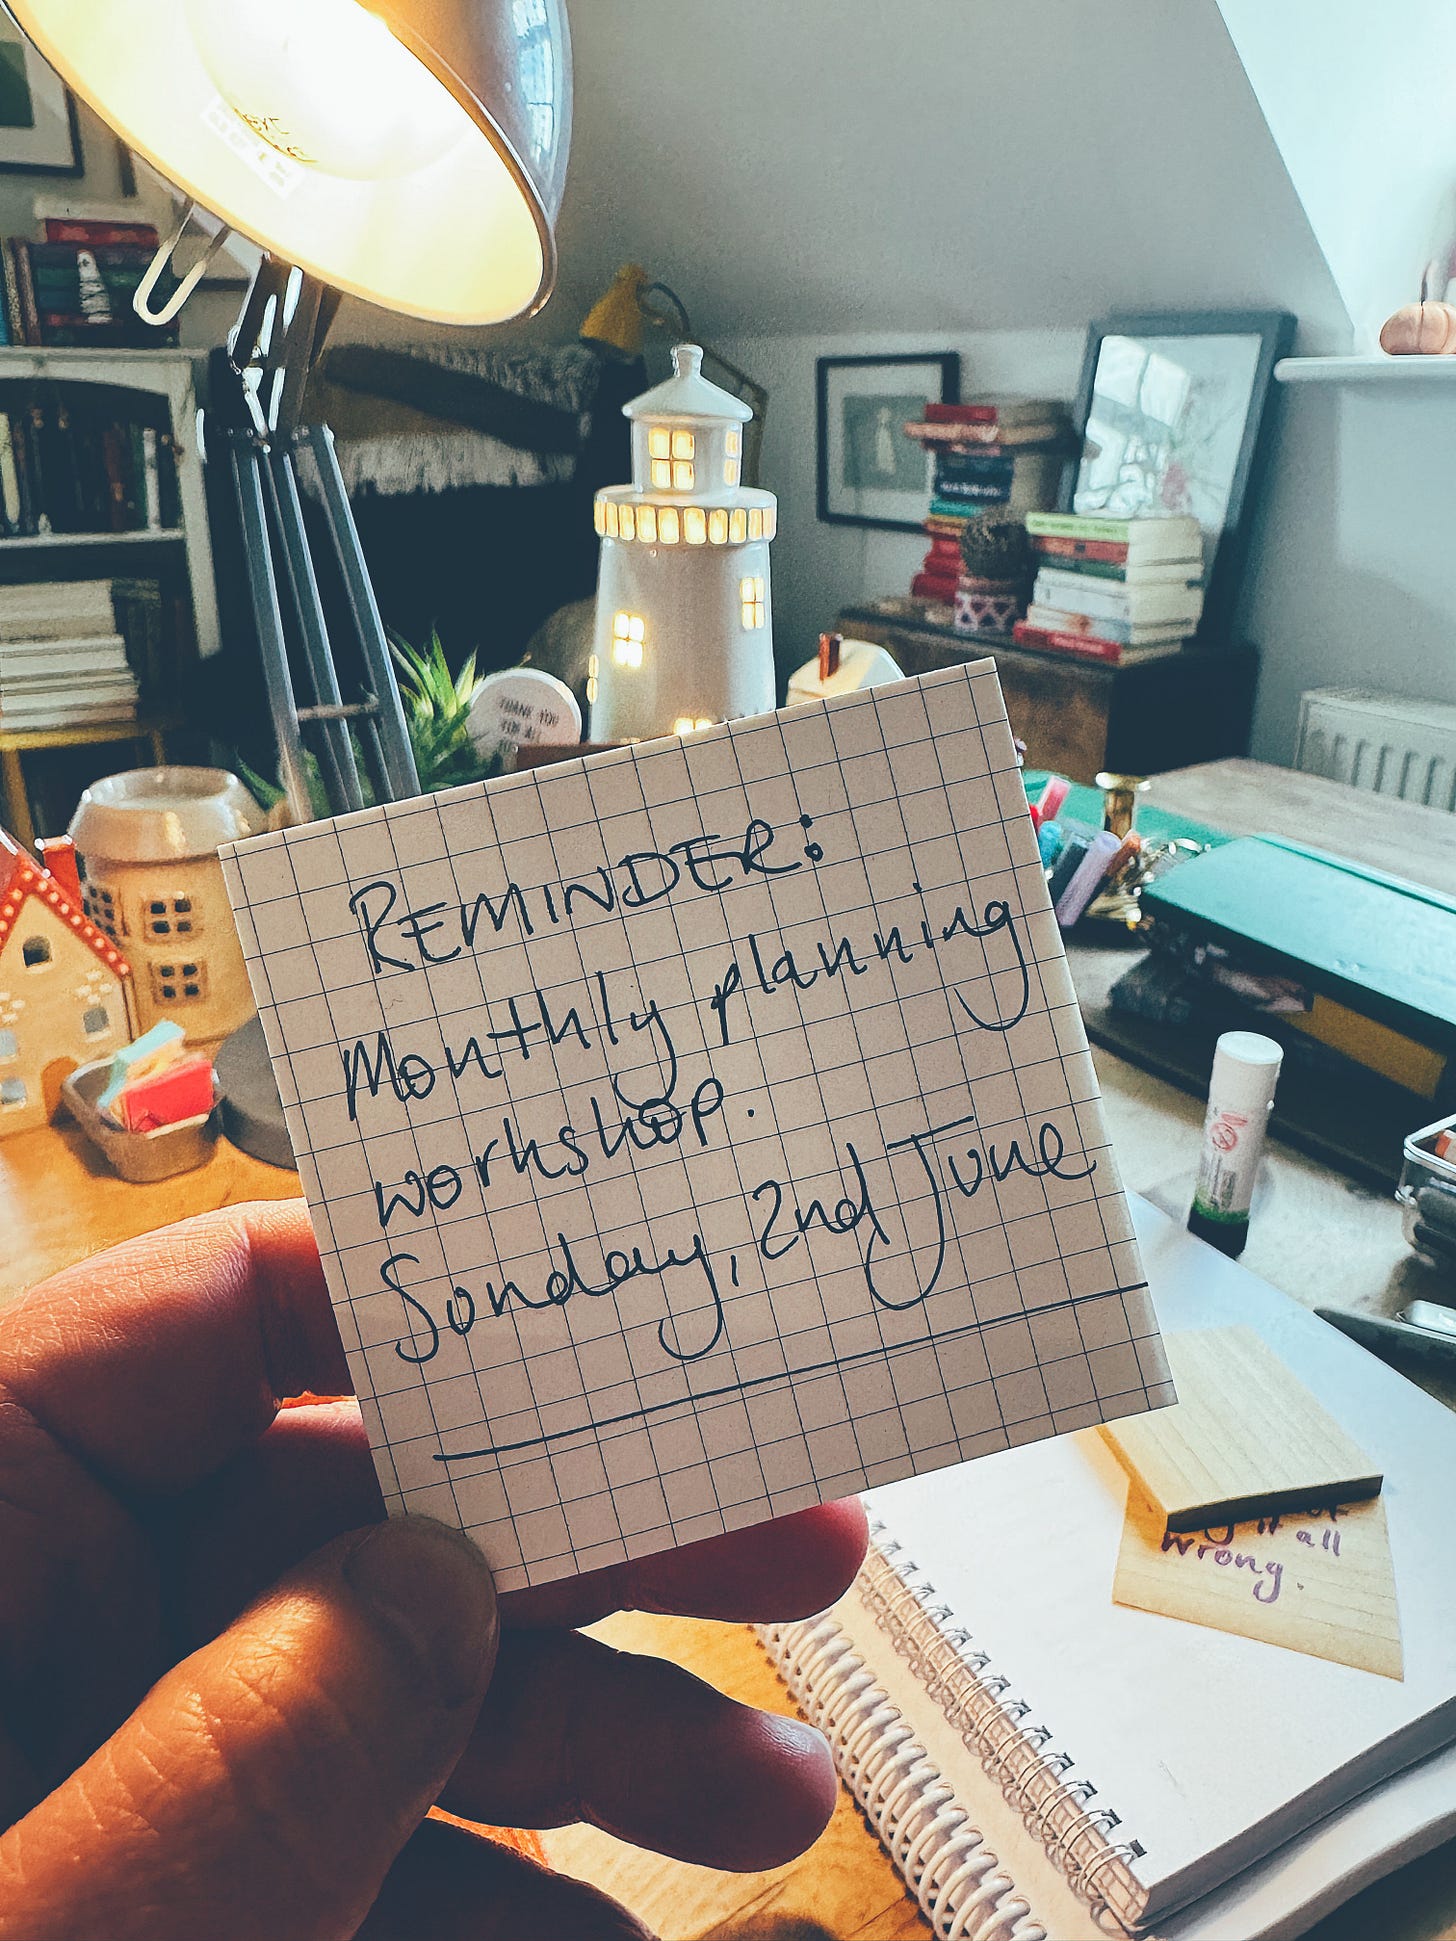 REMINDER:
Monthly planning
workshop.
Sunday, 2nd June
THANK YOU
FOR ALL
it all
wrong.